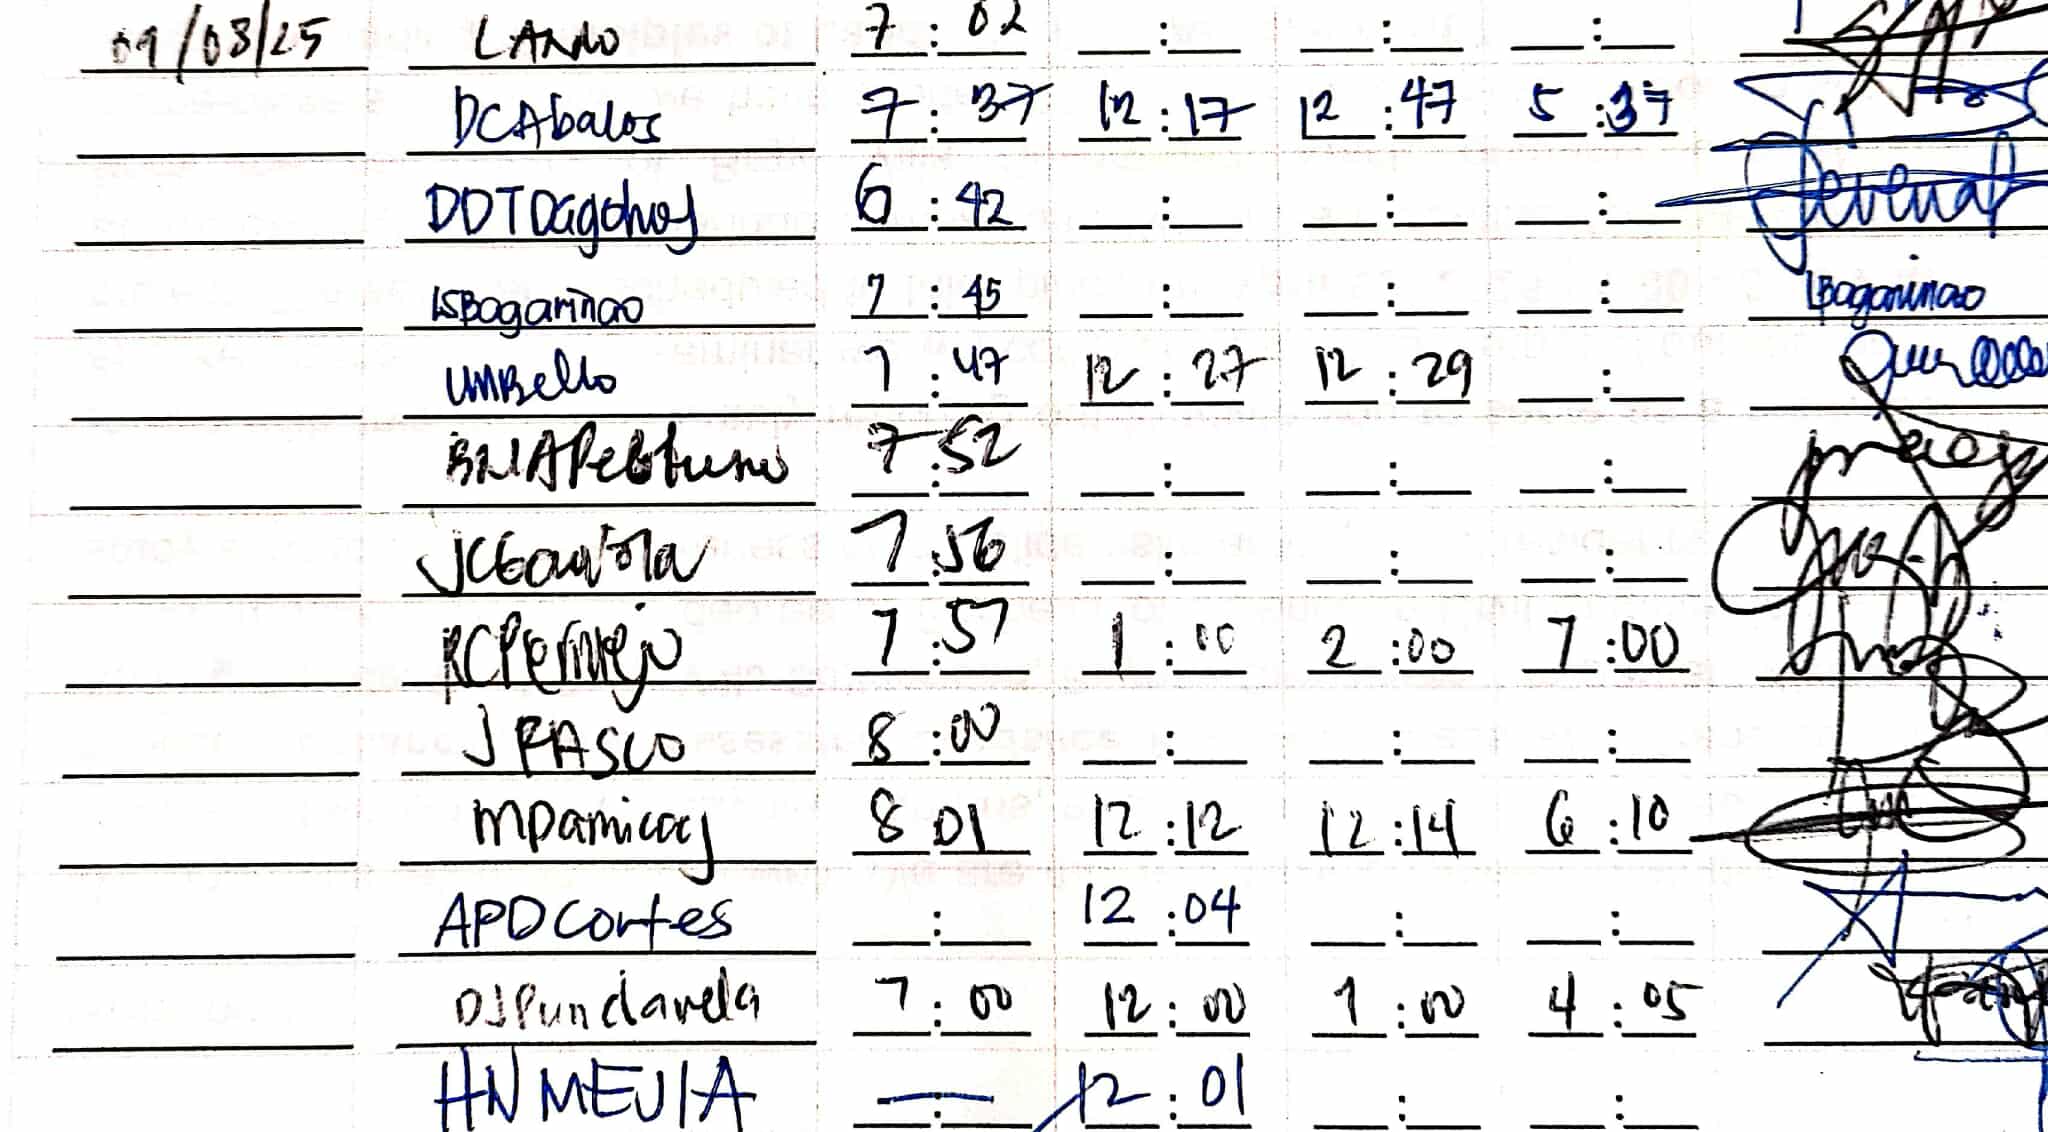 09/03/25 LANDO 7:02 __:__ __:__ __:__
DCAbalos 7:37 12:17 12:47 5:37
DDTDagohoy 6:42 __:__ __:__ __:__
LSBagariñao 7:45 __:__ __:__ __:__ LSBagariñao
UMBello 7:47 12:27 12:29 __:__
7:52 __:__ __:__ __:__
7:56 __:__ __:__ __:__
RCPermejo 7:57 1:00 2:00 7:00
JRASCO 8:00 __:__ __:__ __:__
MDamicog 8 01 12:12 12:14 6:10
APDCortes __:__ 12:04 __:__ __:__
DJPundavela 7:00 12:00 1:00 4:05
HNMEJIA __:__ 12:01 __:__ __:__